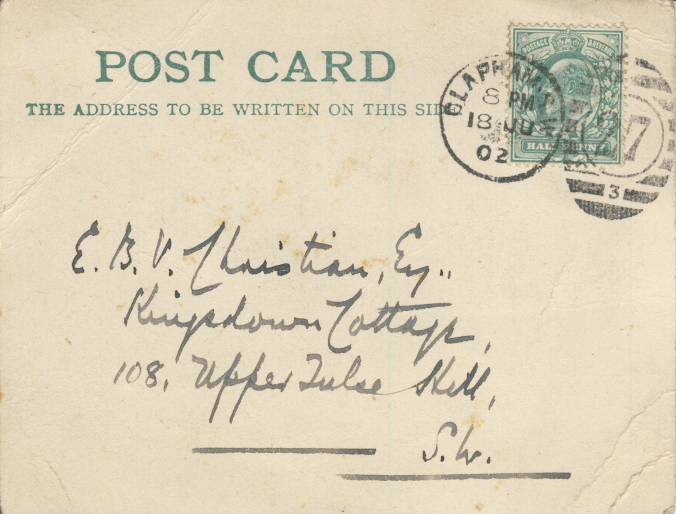 POST CARD
THE ADDRESS TO BE WRITTEN ON THIS SIDE
POSTAGE REVENUE
HALF PENNY
CLAPHAM
8 PM
18 JU
02
7
3
E. B. V. Christian, Esq.,
Kingsdown Cottage,
108, Upper Tulse Hill,
S.W.